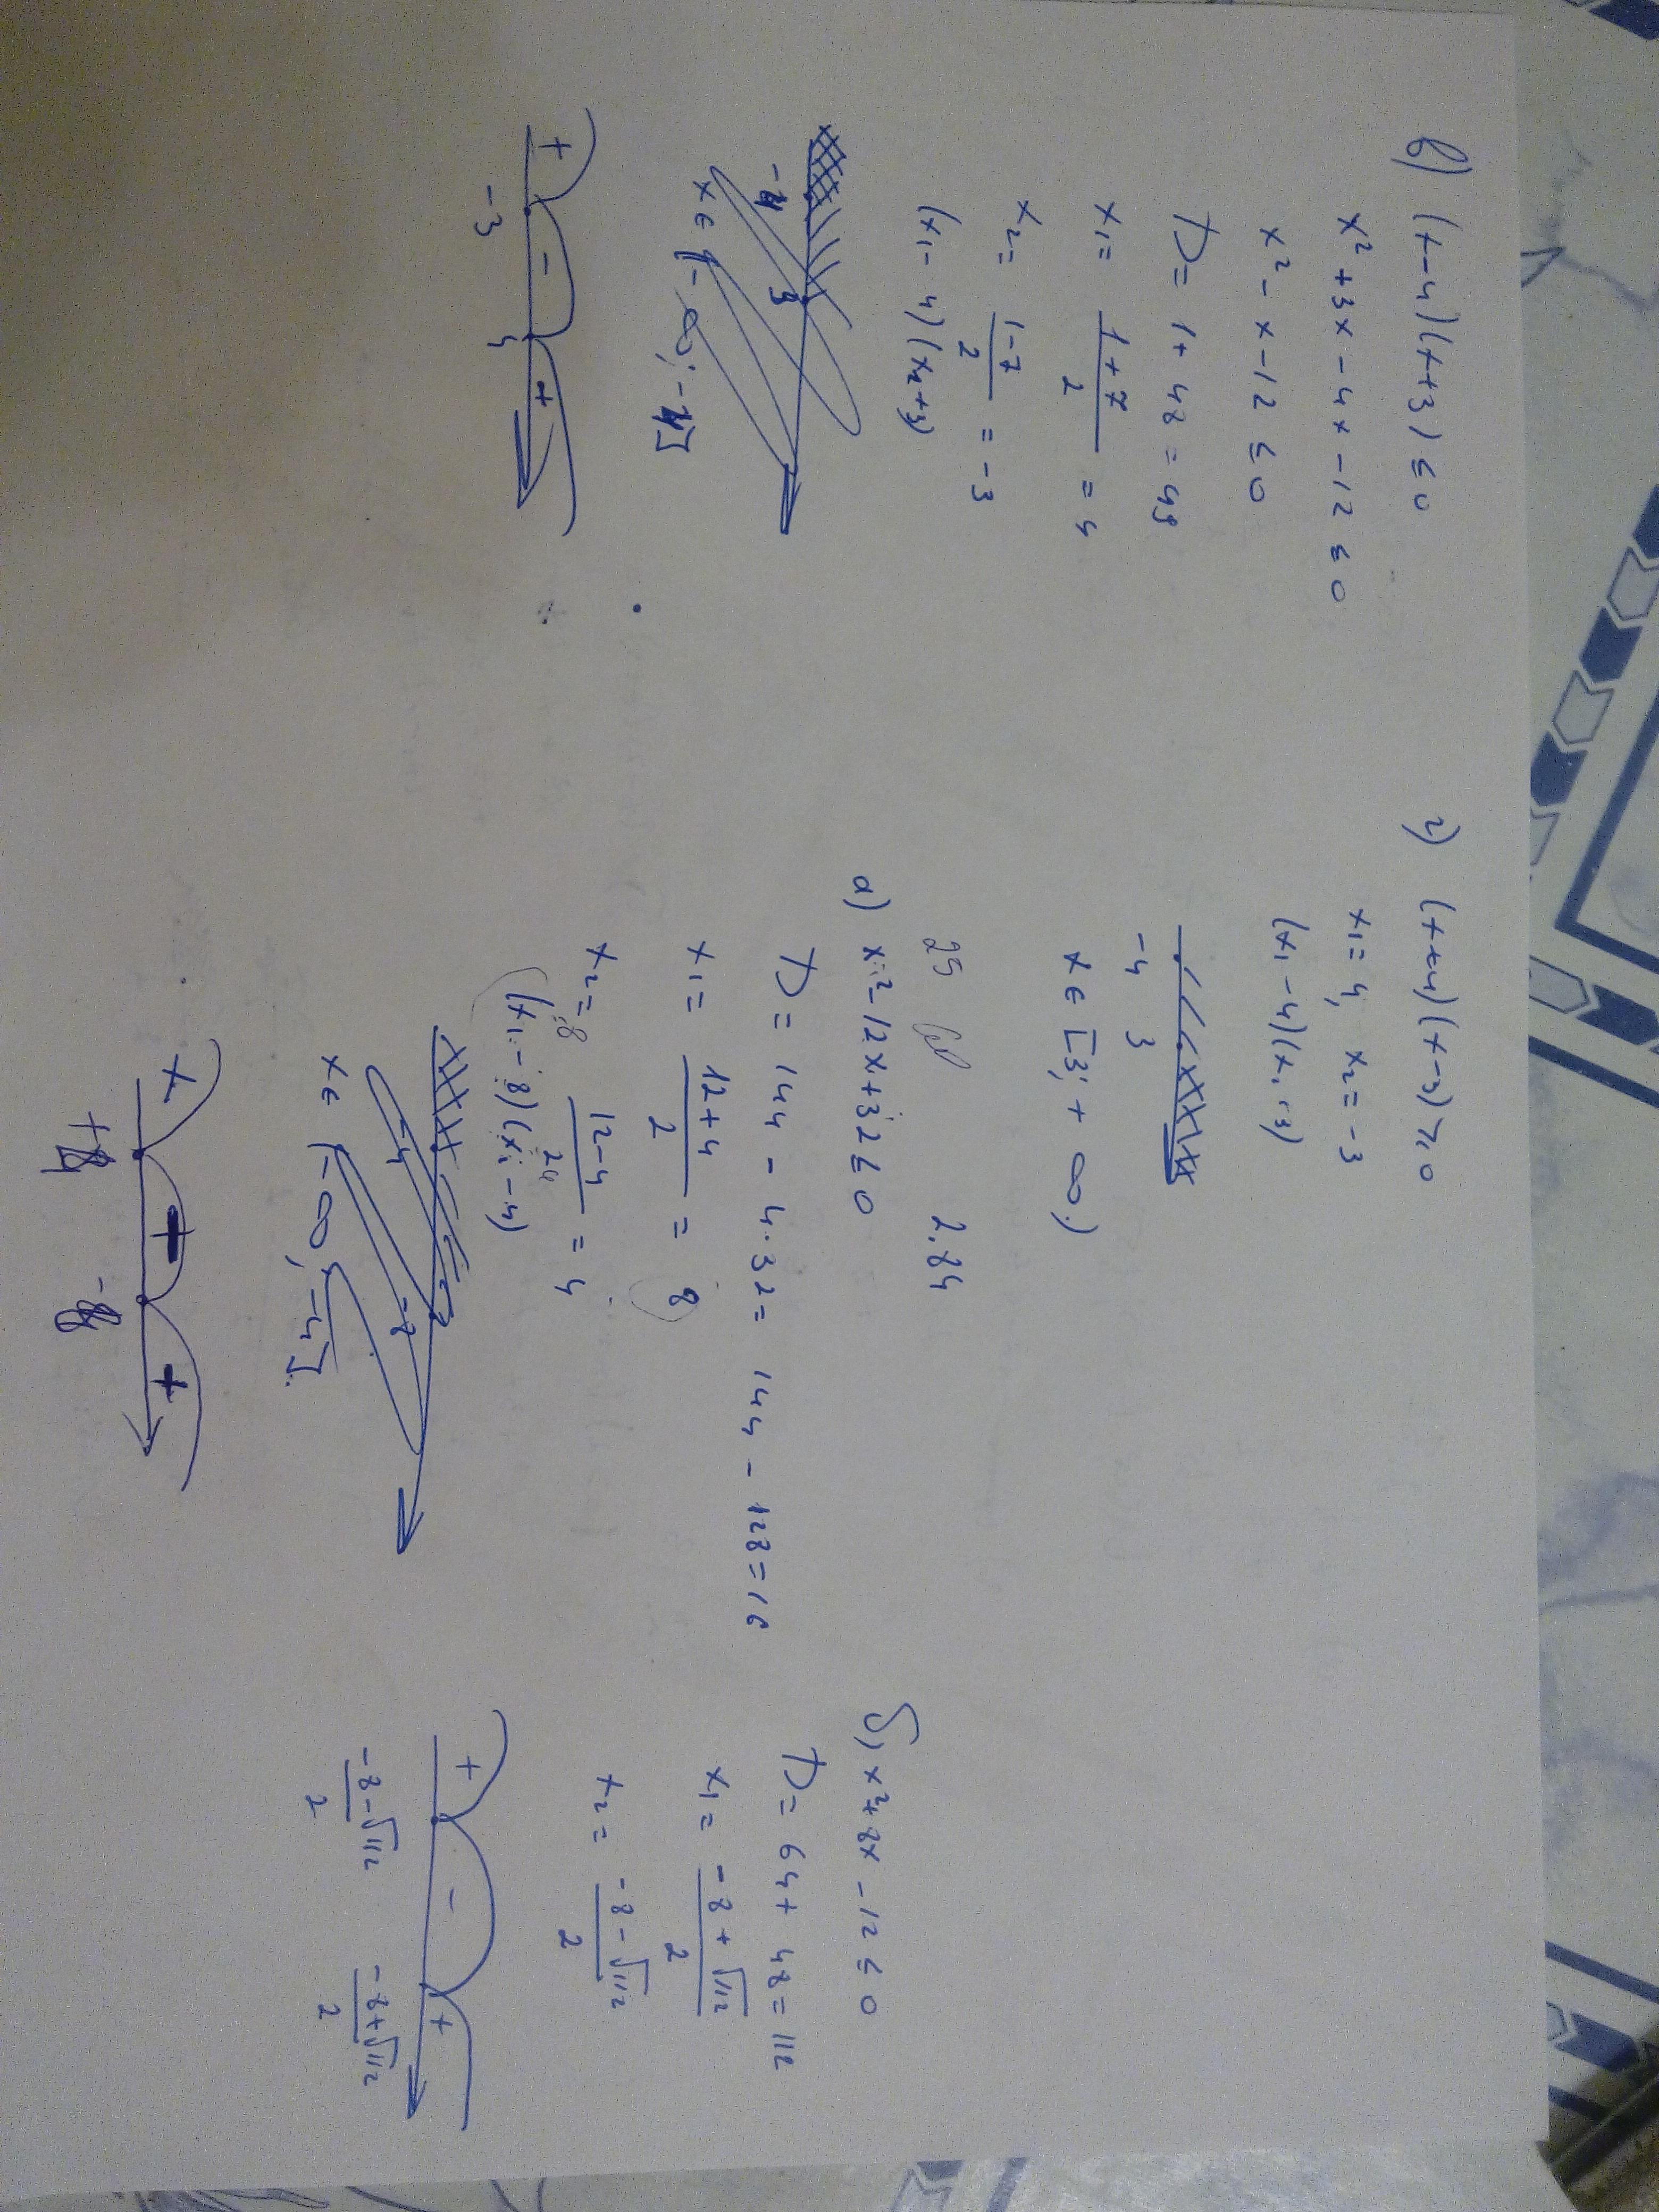 в) (x-4)(x+3) ≤ 0
x² + 3x - 4x - 12 ≤ 0
x² - x - 12 ≤ 0
D = 1 + 48 = 49
x₁ = (1+7)/2 = 4
x₂ = (1-7)/2 = -3
(x₁ - 4)(x₂+3)
-4 3
x ∈ (-∞; -4]
+ - +
-3 4
г) (x+4)(x-3) ≥ 0
x₁ = 4, x₂ = -3
(x₁ - 4)(x₁ + 3)
-4 3
x ∈ [3; + ∞)
25 2.84
а) x² - 12x + 32 ≤ 0
D = 144 - 4·32 = 144 - 128 = 16
x₁ = (12+4)/2 = 8
x₂ = (12-4)/2 = 4
(x₁ - 8)(x₁ - 4)
-4 -8
x ∈ (-∞, -4]
+ +
б) x² + 8x - 12 ≤ 0
D = 64 + 48 = 112
x₁ = (-8 + √112)/2
x₂ = (-8 - √112)/2
+ - +
(-8 - √112)/2 (-8 + √112)/2